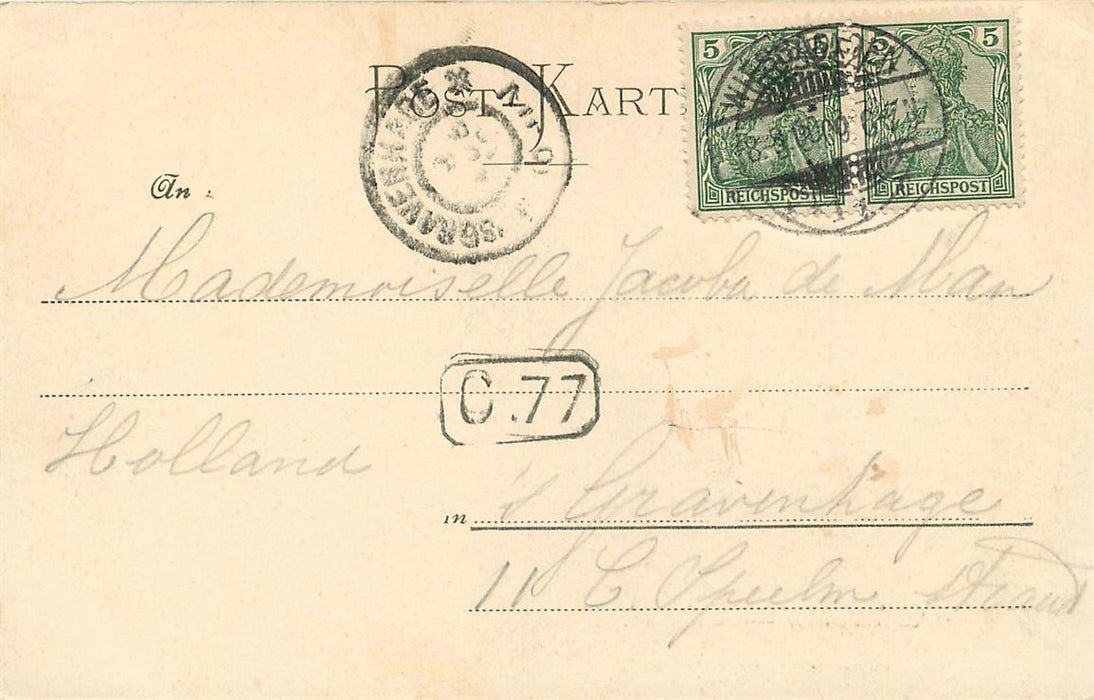 POST KART
5 5
WIESBADEN
REICHSPOST REICHSPOST
'SGRAVENHAGE
An
Mademoiselle Jacoba de Man
C.77
Holland
in 's Gravenhage
11 C. Speelm. straat